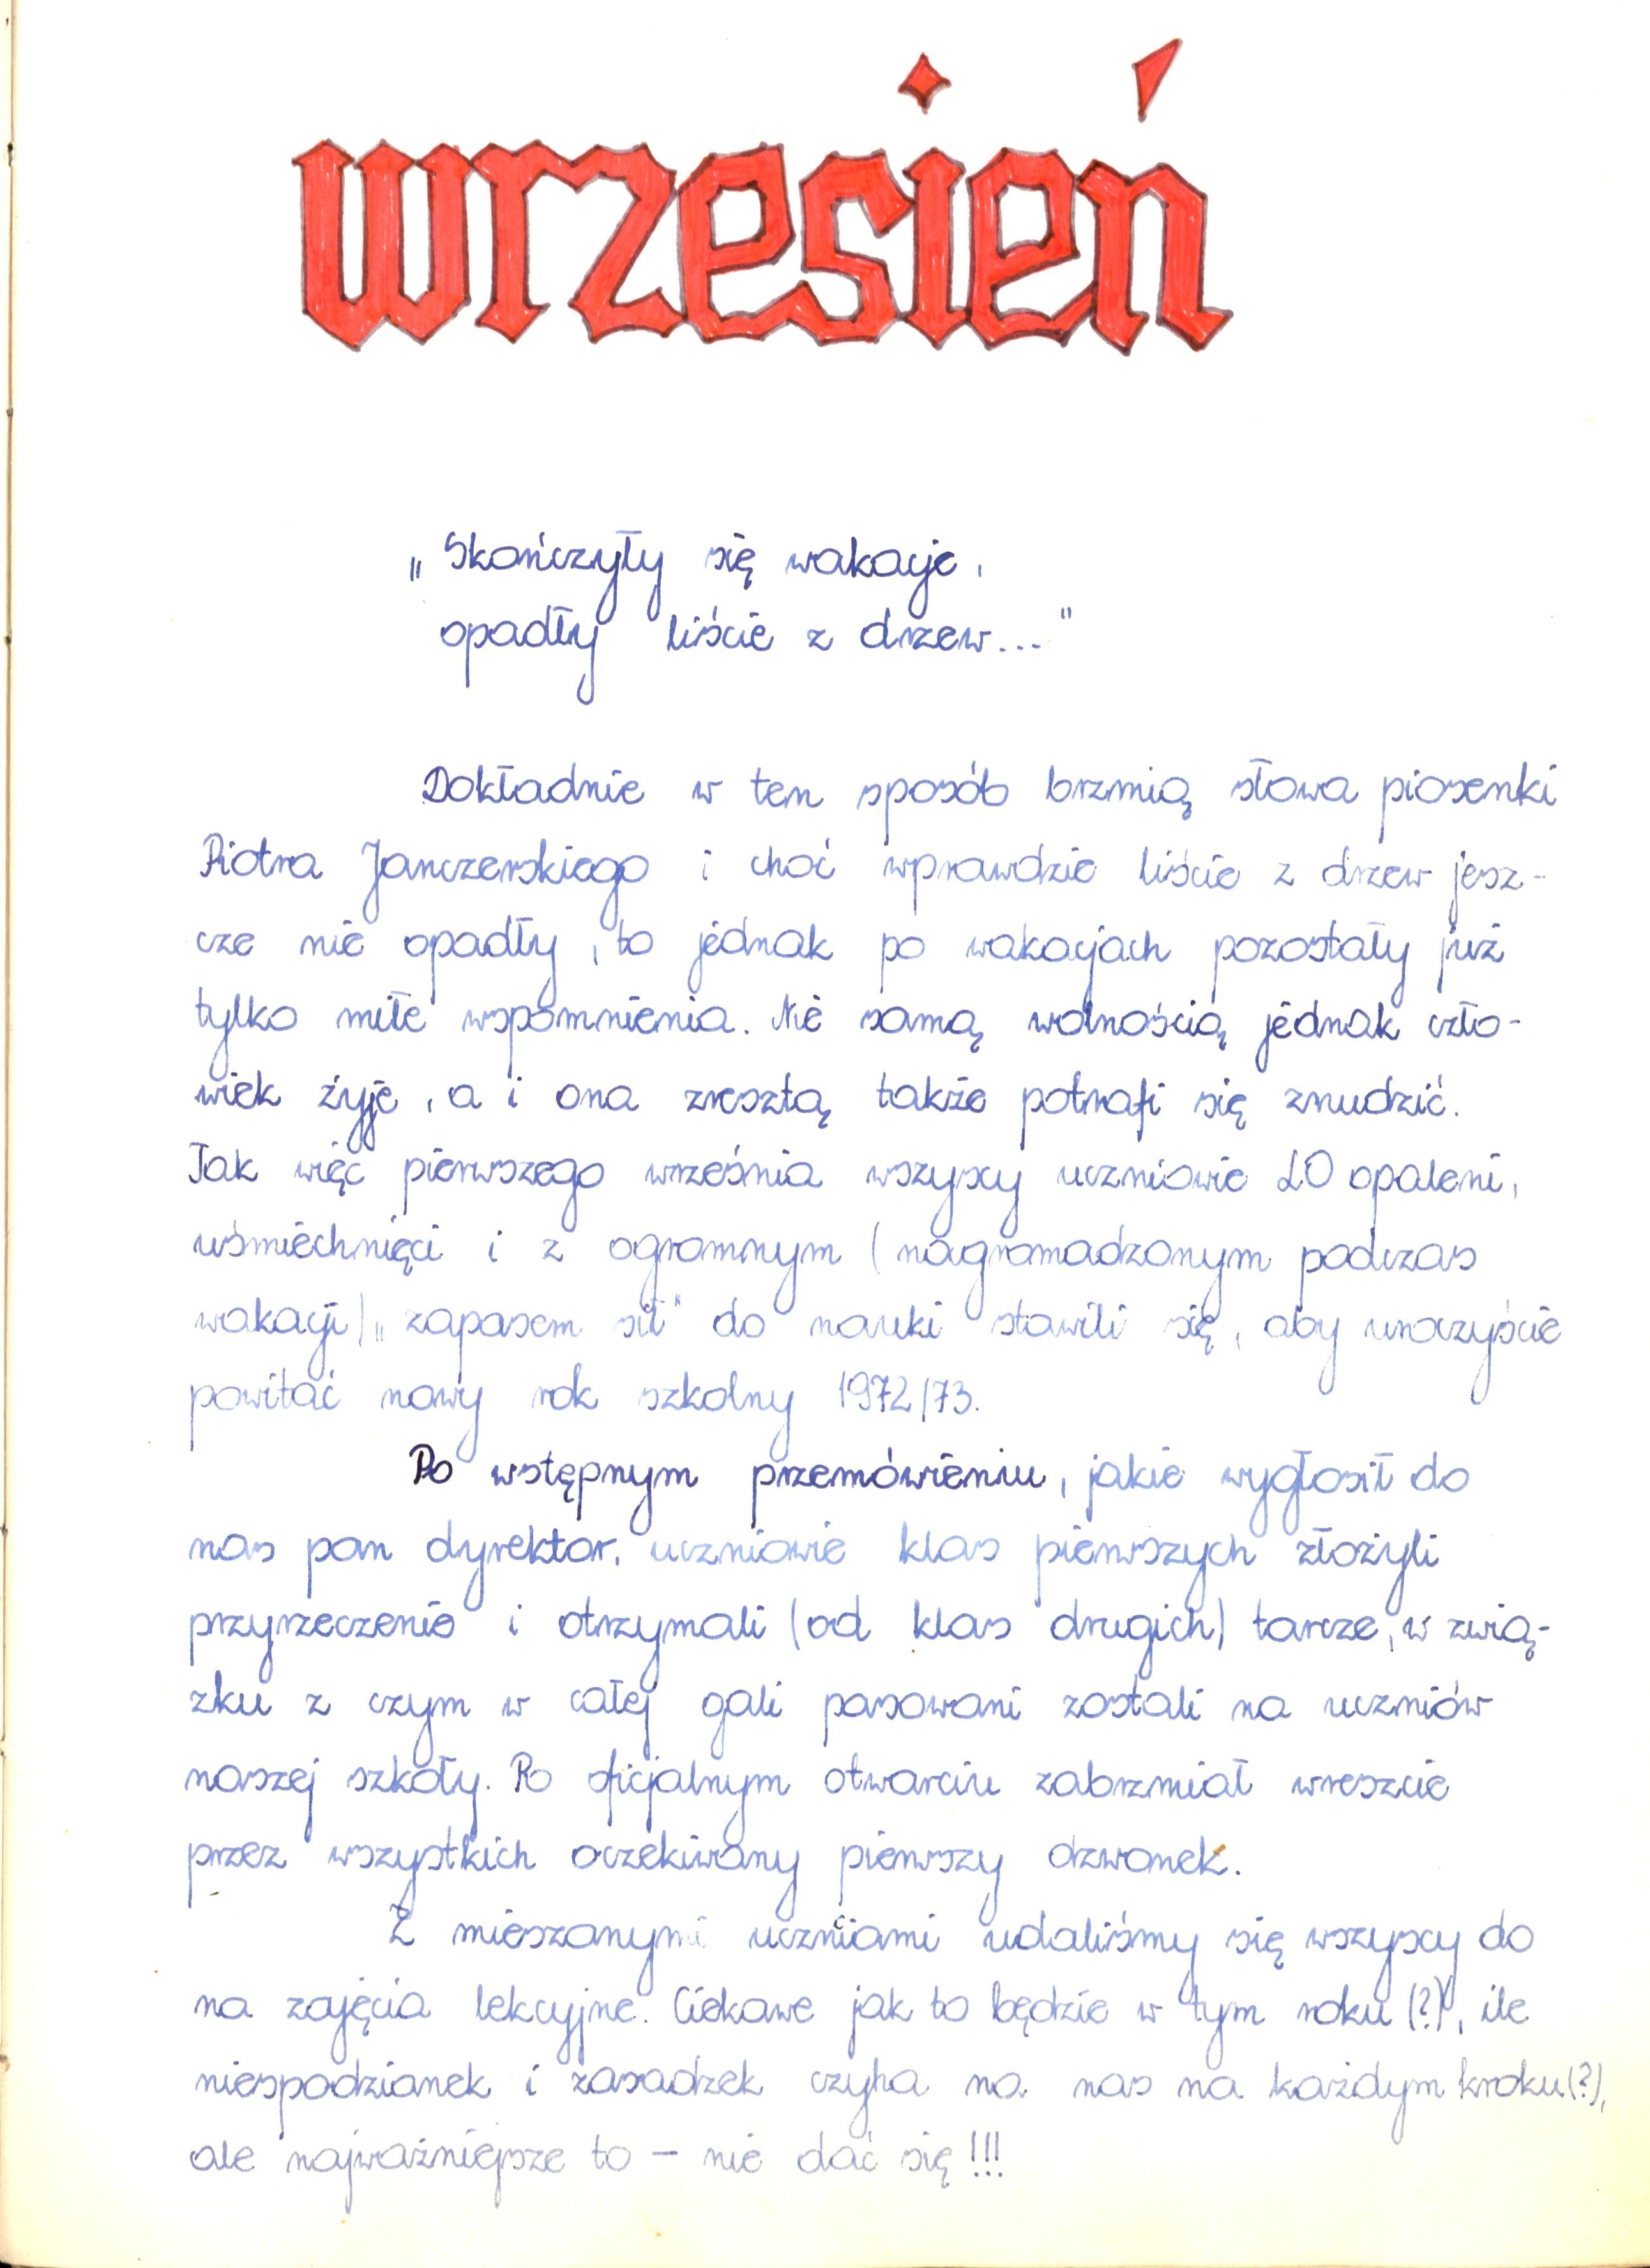 wrzesień
„Skończyły się wakacje,
opadły liście z drzew..."
Dokładnie w ten sposób brzmią słowa piosenki
Piotra Janczerskiego i choć wprawdzie liście z drzew jesz-
cze nie opadły, to jednak po wakacjach pozostały już
tylko miłe wspomnienia. Nie samą wolnością jednak czło-
wiek żyje, a i ona zresztą także potrafi się znudzić.
Tak więc pierwszego września wszyscy uczniowie LO opaleni,
uśmiechnięci i z ogromnym (nagromadzonym podczas
wakacji) „zapasem sił" do nauki stawili się, aby uroczyście
powitać nowy rok szkolny 1972/73.
Po wstępnym przemówieniu, jakie wygłosił do
nas pan dyrektor, uczniowie klas pierwszych złożyli
przyrzeczenie i otrzymali (od klas drugich) tarcze, w zwią-
zku z czym w całej gali pasowani zostali na uczniów
naszej szkoły. Po oficjalnym otwarciu zabrzmiał wreszcie
przez wszystkich oczekiwany pierwszy dzwonek.
Z mieszanymi uczuciami udaliśmy się wszyscy do
na zajęcia lekcyjne. Ciekawe jak to będzie w tym roku (?), ile
niespodzianek i zasadzek czyha na nas na każdym kroku(?),
ale najważniejsze to – nie dać się!!!